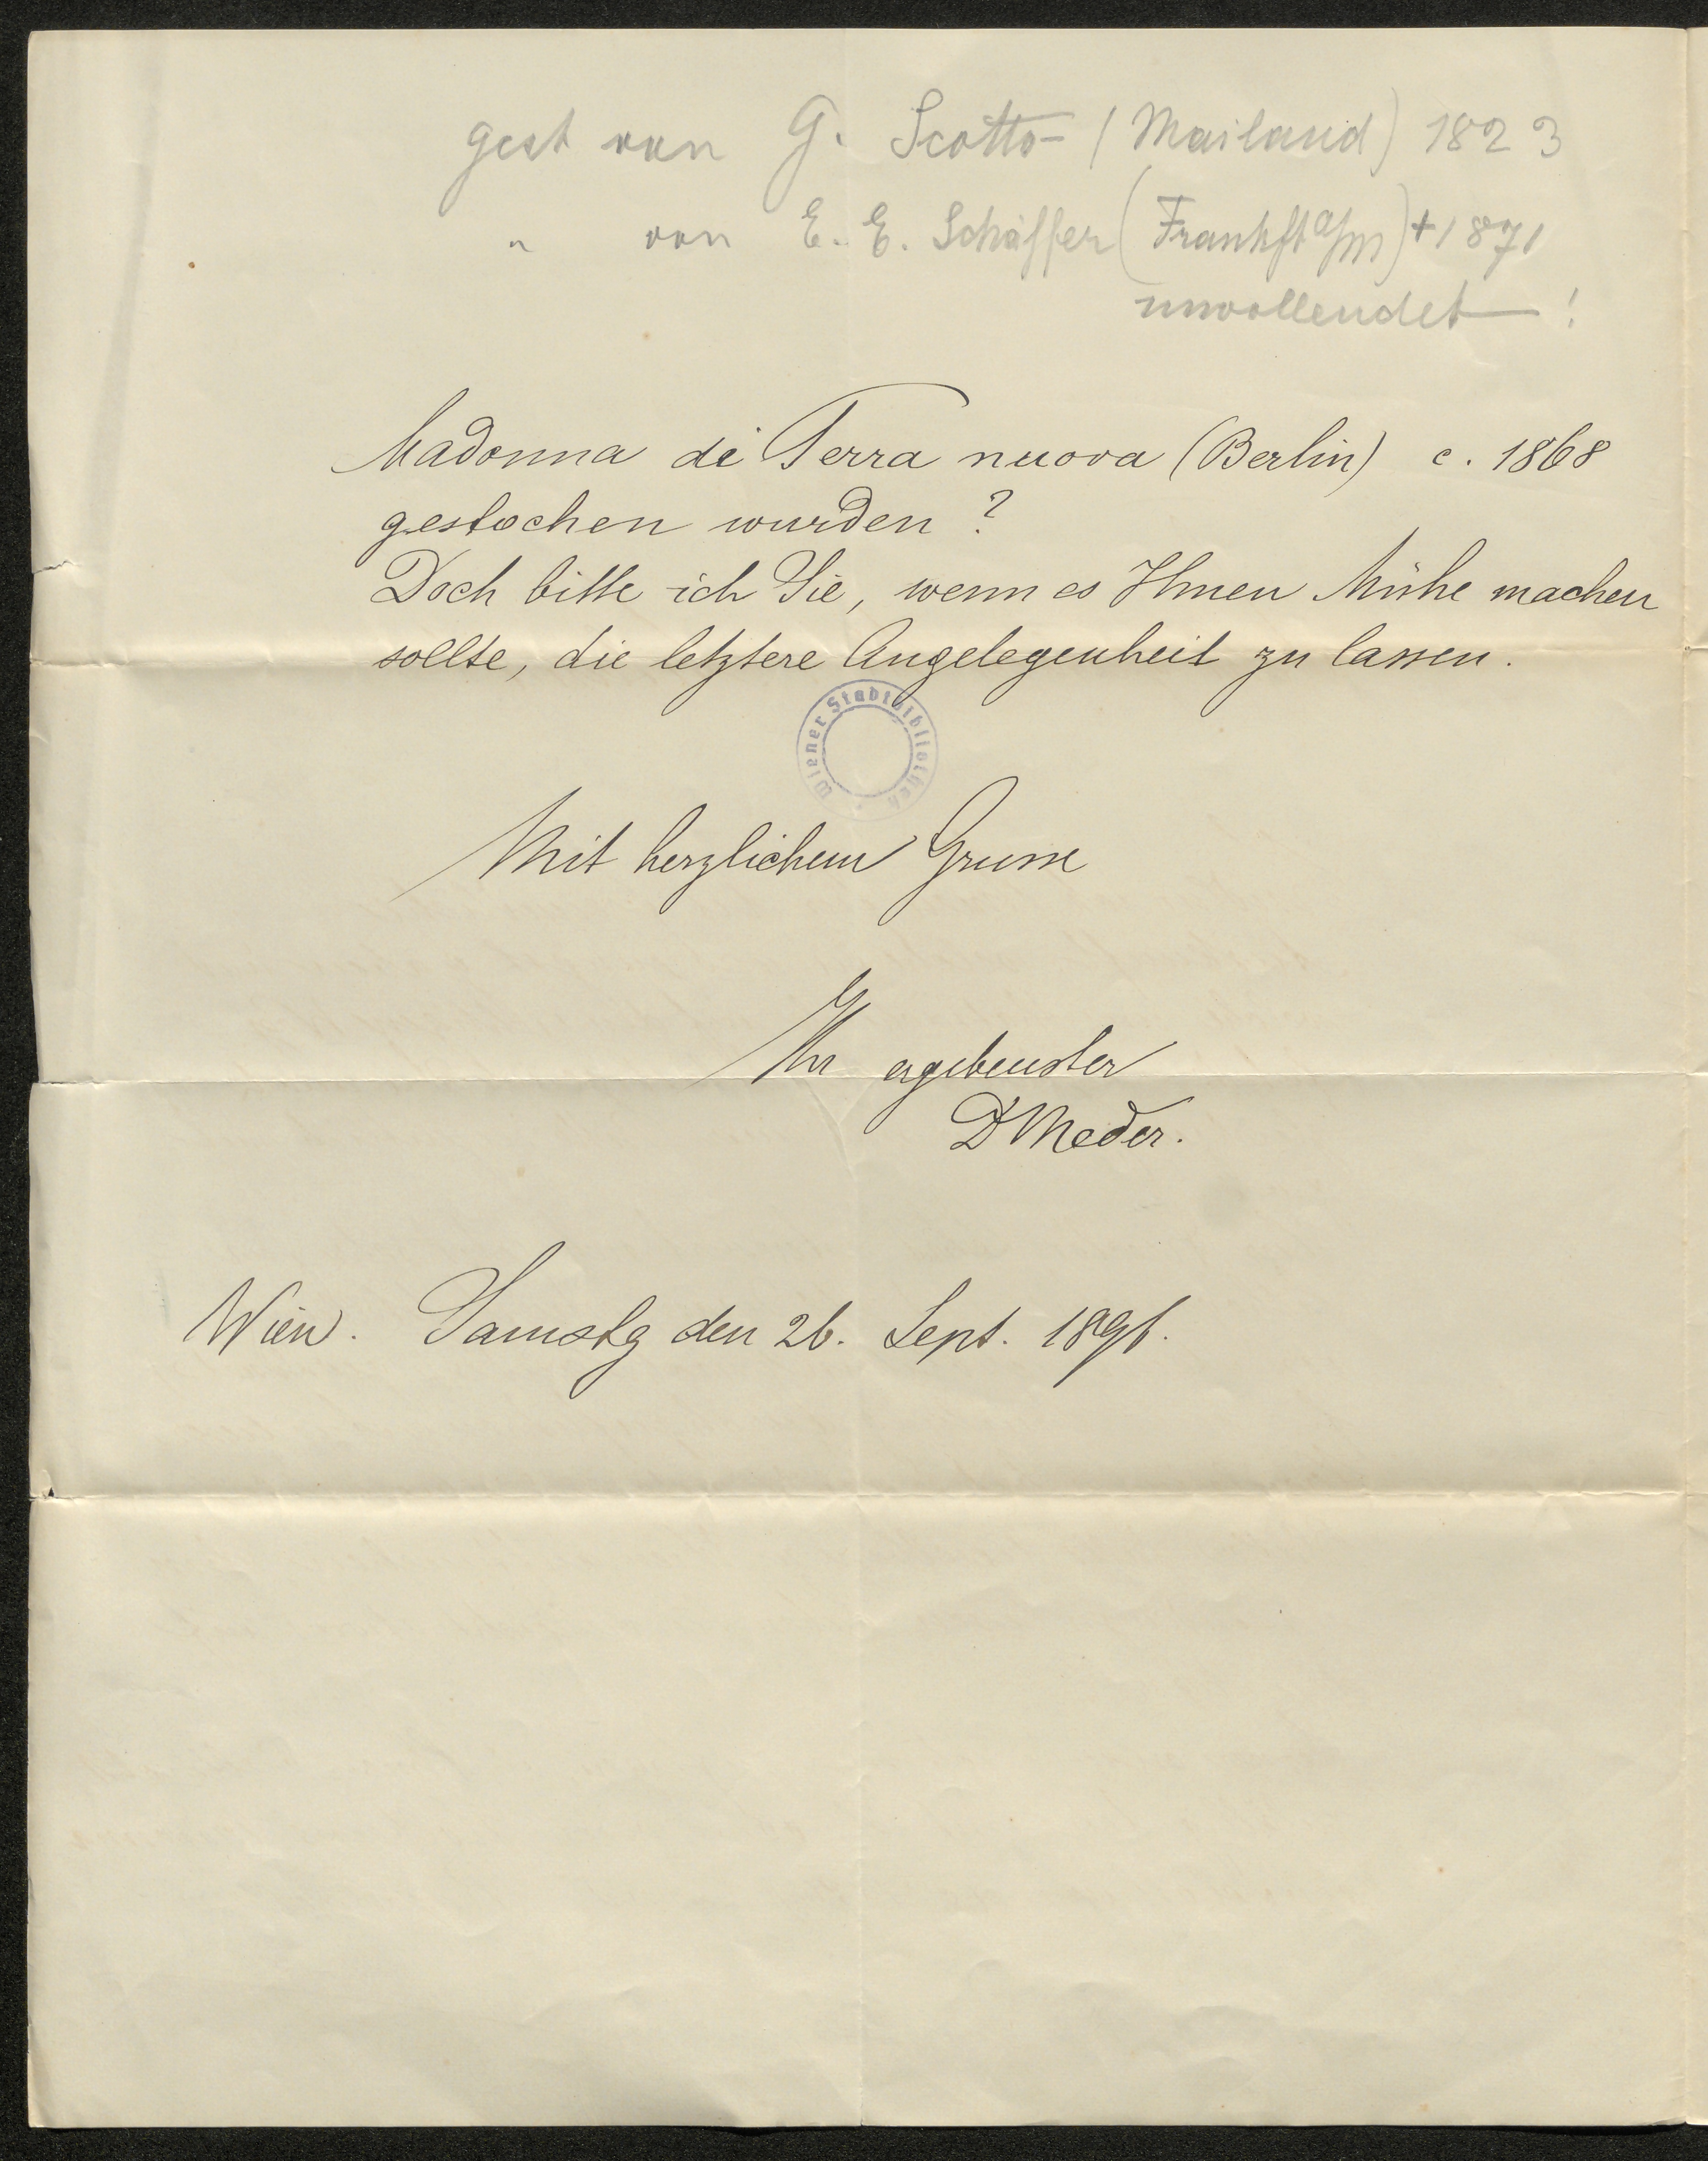 gest von G. Scotto (Mailand) 1823
" von E. E. Schäffer (Frankft a/m) + 1871
unvollendet!
Madonna di Terra nuova (Berlin) c. 1868
gestochen wurden?
Doch bitte ich Sie, wenn es Ihnen Mühe machen
sollte, die letztere Angelegenheit zu lassen.
Wiener Stadtbibliothek
Mit herzlichem Grusse
Ihr ergebenster
Dr Meder.
Wien. Samstg den 26. Sept. 1896.